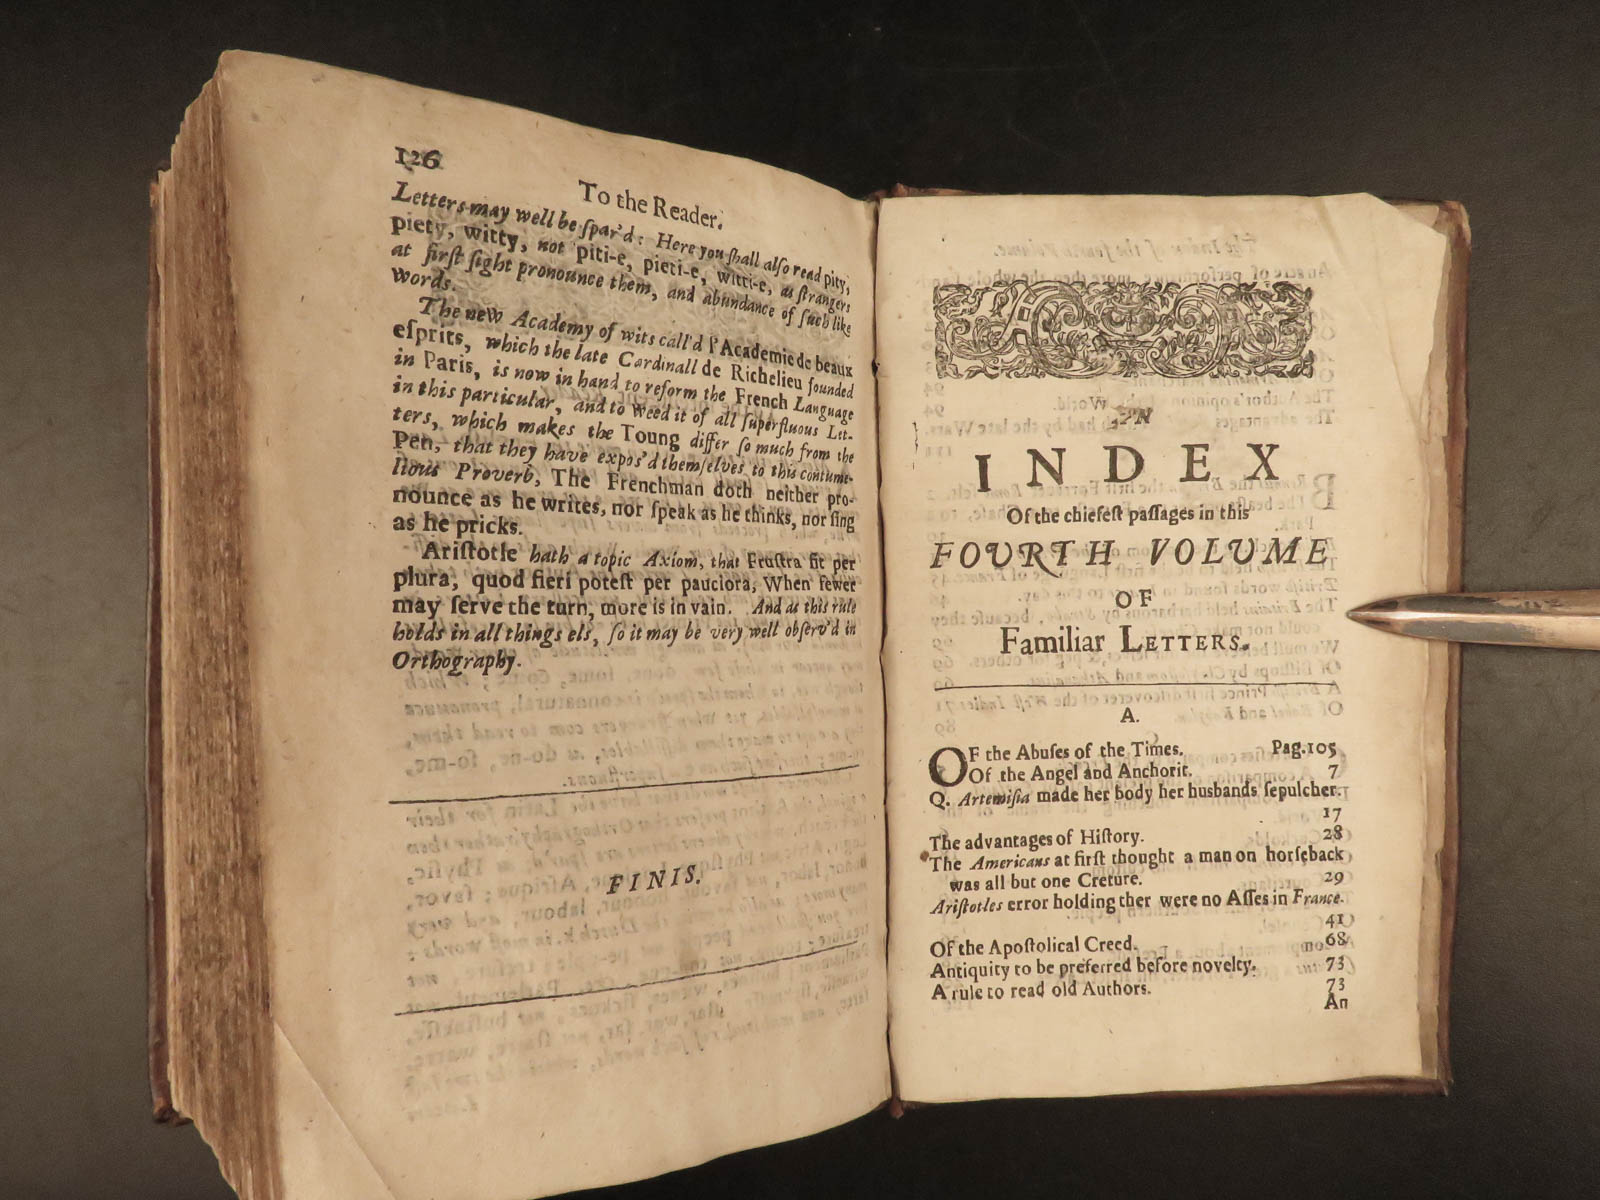 126
To the Reader.
Letters may well be ſpar'd: Here you ſhall alſo read pity,
piety, witty, not piti-e, pieti-e, witti-e, as ſtrangers
at firſt ſight pronounce them, and abundance of ſuch like
words.
The new Academy of wits call'd l'Academie de beaux
eſprits, which the late Cardinall de Richelieu founded
in Paris, is now in hand to reform the French Language
in this particular, and to weed it of all ſuperfluous Let-
ters, which makes the Toung differ ſo much from the
Pen, that they have expos'd themſelves to this contume-
lious Proverb, The Frenchman doth neither pro-
nounce as he writes, nor ſpeak as he thinks, nor ſing
as he pricks.
Ariſtotle hath a topic Axiom, that Fruſtra fit per
plura, quod fieri poteſt per pauciora, When fewer
may ſerve the turn, more is in vain. And as this rule
holds in all things els, ſo it may be very well obſerv'd in
Orthography.
FINIS.
AN
INDEX
Of the chiefeſt paſſages in this
FOURTH VOLUME
OF
Familiar LETTERS.
A.
OF the Abuſes of the Times. Pag.105
Of the Angel and Anchorit. 7
Q. Artemiſia made her body her husbands ſepulcher.
17
The advantages of Hiſtory. 28
The Americans at firſt thought a man on horſeback
was all but one Creture. 29
Ariſtotles error holding ther were no Aſſes in France.
41
Of the Apoſtolical Creed. 68
Antiquity to be preferred before novelty. 73
A rule to read old Authors. 73
An